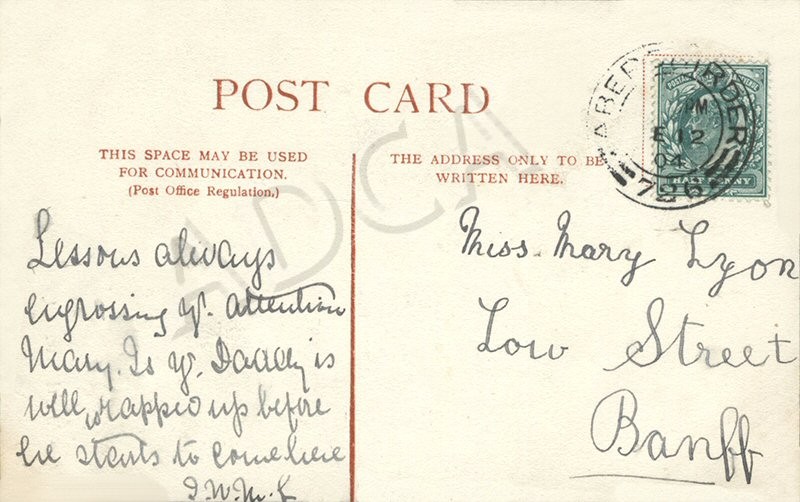 POST CARD
THIS SPACE MAY BE USED
FOR COMMUNICATION.
(Post Office Regulation.)
THE ADDRESS ONLY TO BE
WRITTEN HERE.
ABERDOUR
PM
12
04
726
HALF PENNY
ADCA
Lessons always
engrossing yr. attention
Mary. Is yr. Daddy is
well wrapped up before
he starts to come here
Miss. Mary Lyon
Low Street
Banff